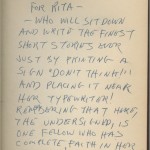 FOR RITA –
– WHO WILL SIT DOWN
AND WRITE THE FINEST
SHORT STORIES EVER
JUST BY PRINTING A
SIGN "DON'T THINK!!!"
AND PLACING IT NEAR
HER TYPEWRITER!
REMEMBERING THAT HERE,
THE UNDERSIGNED, IS
ONE FELLOW WHO HAS
COMPLETE FAITH IN HER